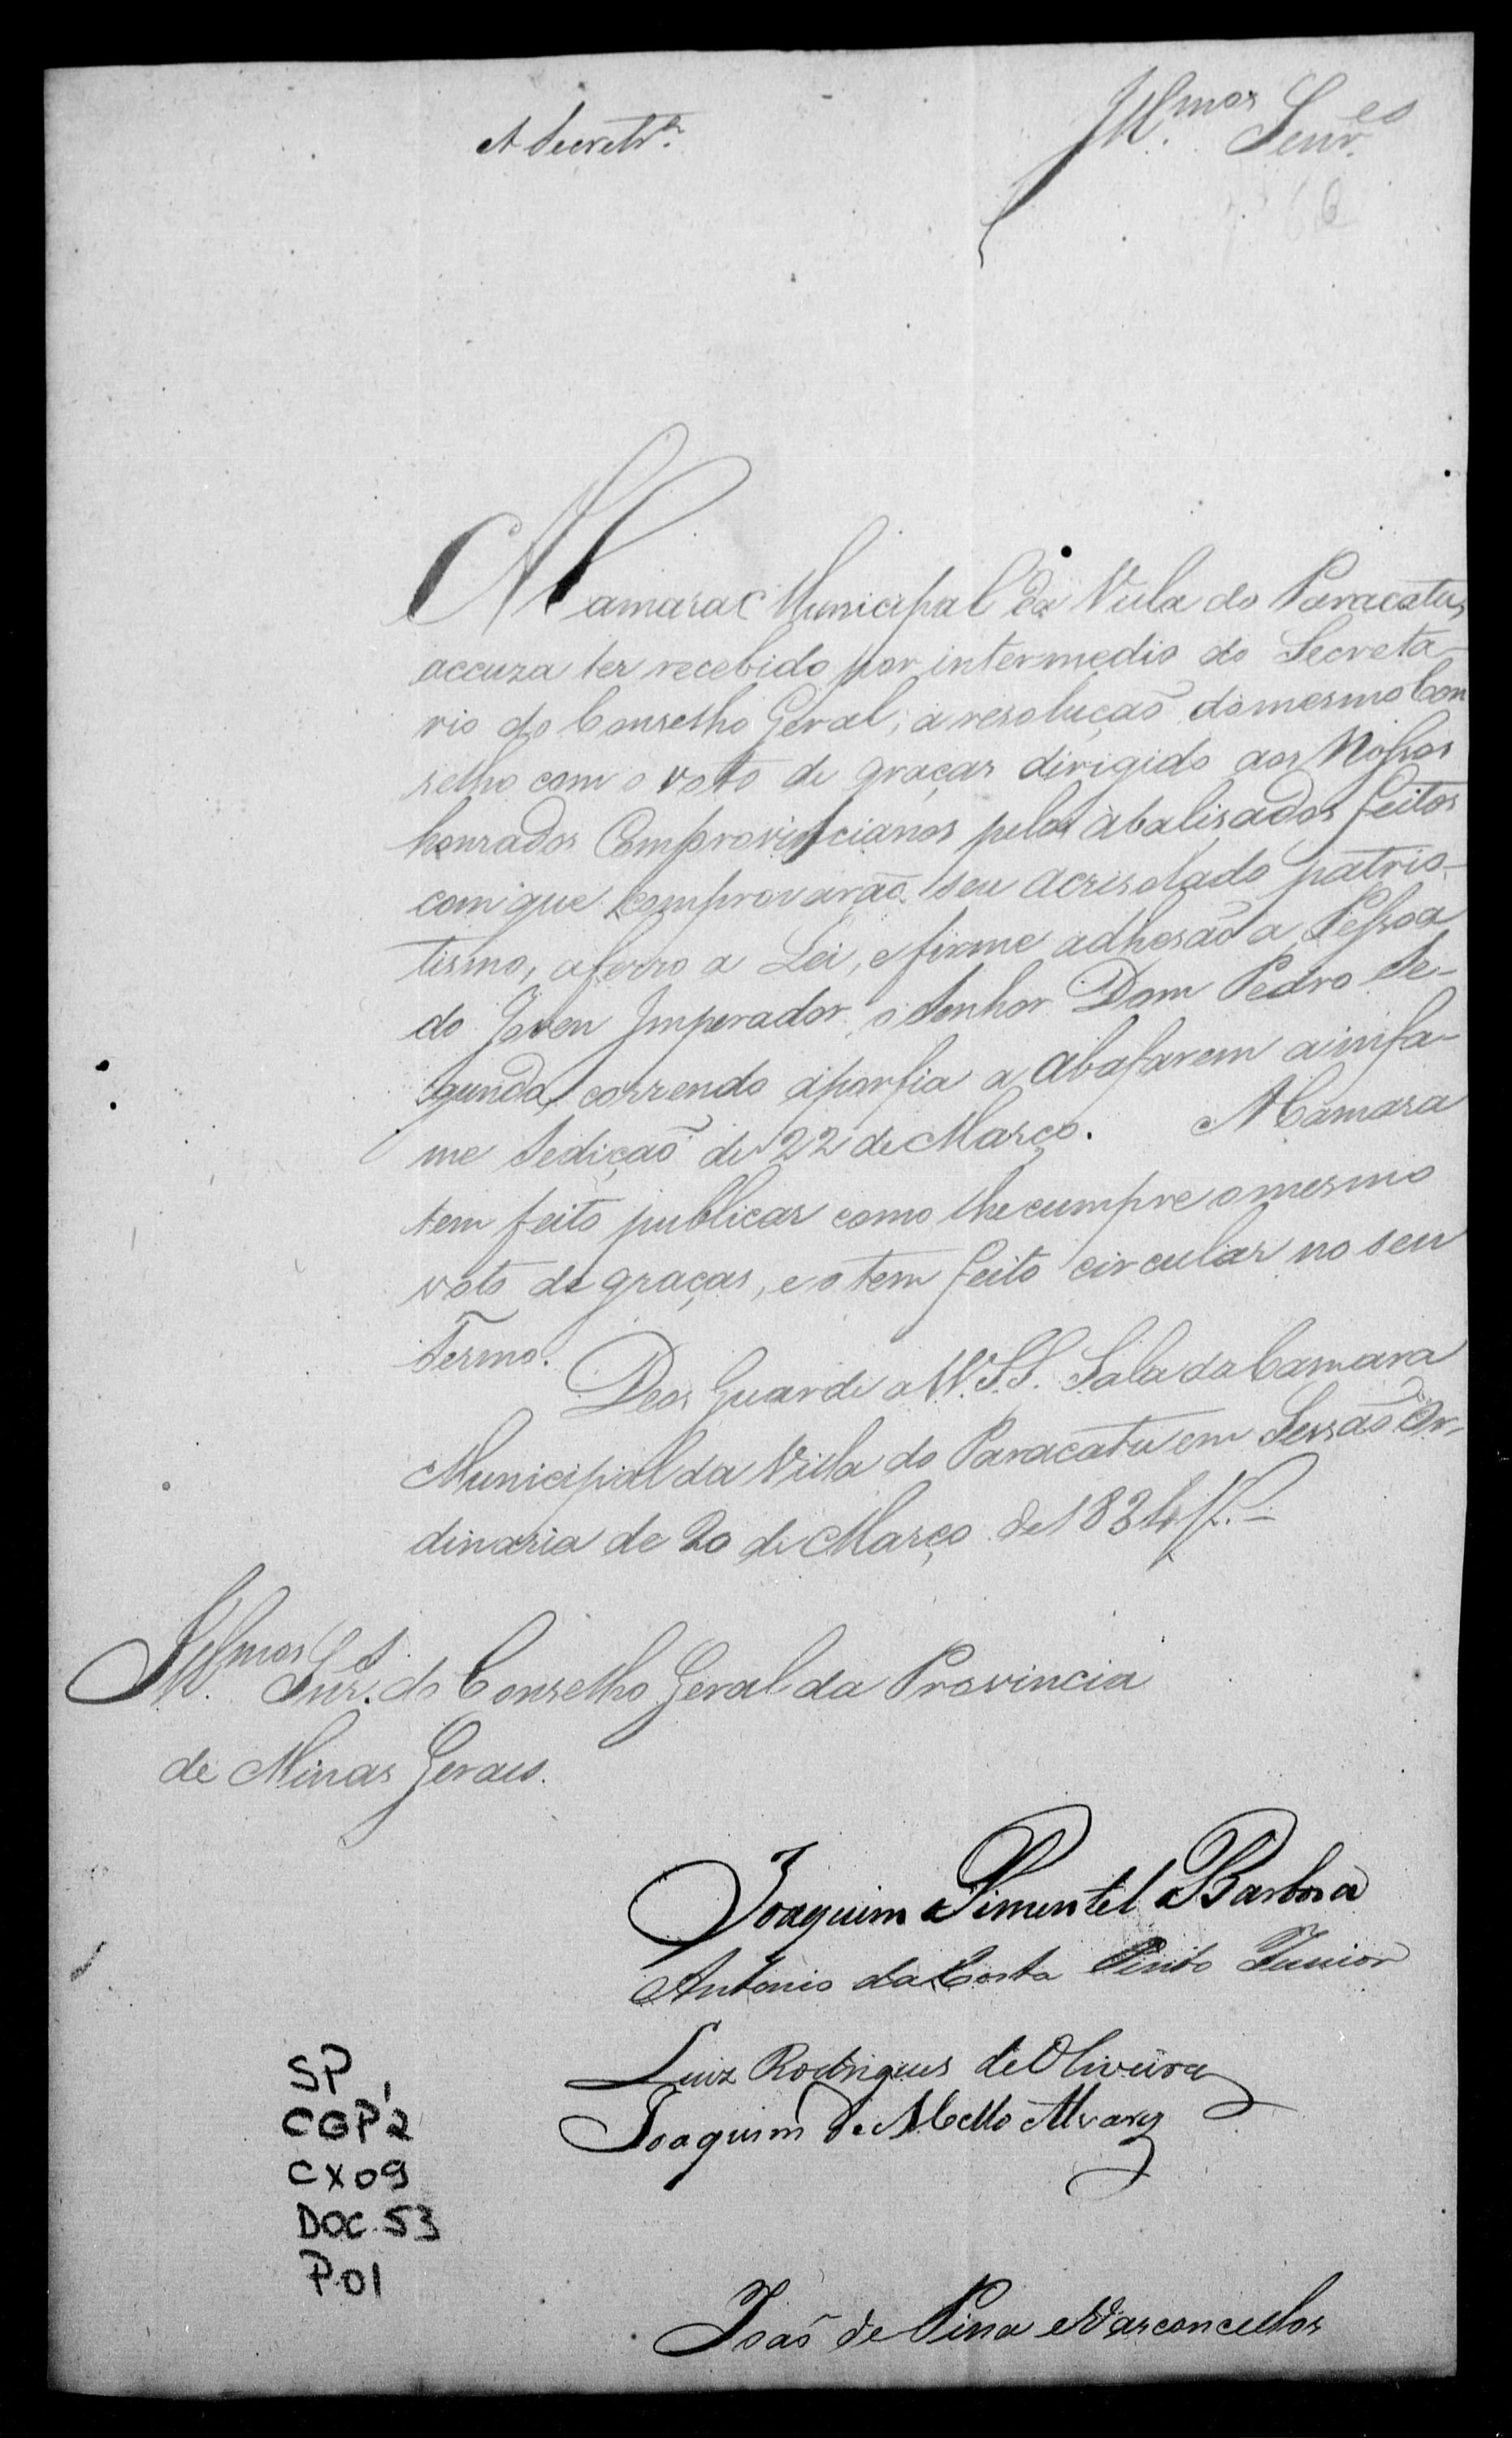 A Secretrª.
Illmos Senres
A Camara Municipal da Villa do Paracatu,
accuza ter recebido por intermedio do Secreta-
rio do Conselho Geral, a resolução do mesmo Con
selho com o voto de graças dirigido aos Nossos
honrados Comprovincianos pelos abalisados feitos
com que comprovarão seu acrisolado patrio-
tismo, aferro a Lei, e firme adhesão a Pessoa
do Joven Imperador, o Senhor Dom Pedro Se-
gundo, correndo áporfia a abafarem a infa-
me Sedição de 22 de Março. A Camara
tem feito publicar como lhe cumpre o mesmo
voto de graças, e o tem feito circular no seu
Termo.
Deos Guarde a V.V.S.S. Sala da Camara
Municipal da Villa do Paracatu em Sessão Or-
dinaria de 20 de Março de 1834
Illmos Snrs. do Conselho Geral da Provincia
de Minas Geraes.
Joaquim Pimentel Barbosa
Antonio da Costa Pinto Junior
Luiz Rodrigues de Oliveira
Joaquim de Mello Alvarz
João de Pina e Vasconcellos
SP
CGP'2
CX09
DOC. 53
P.01